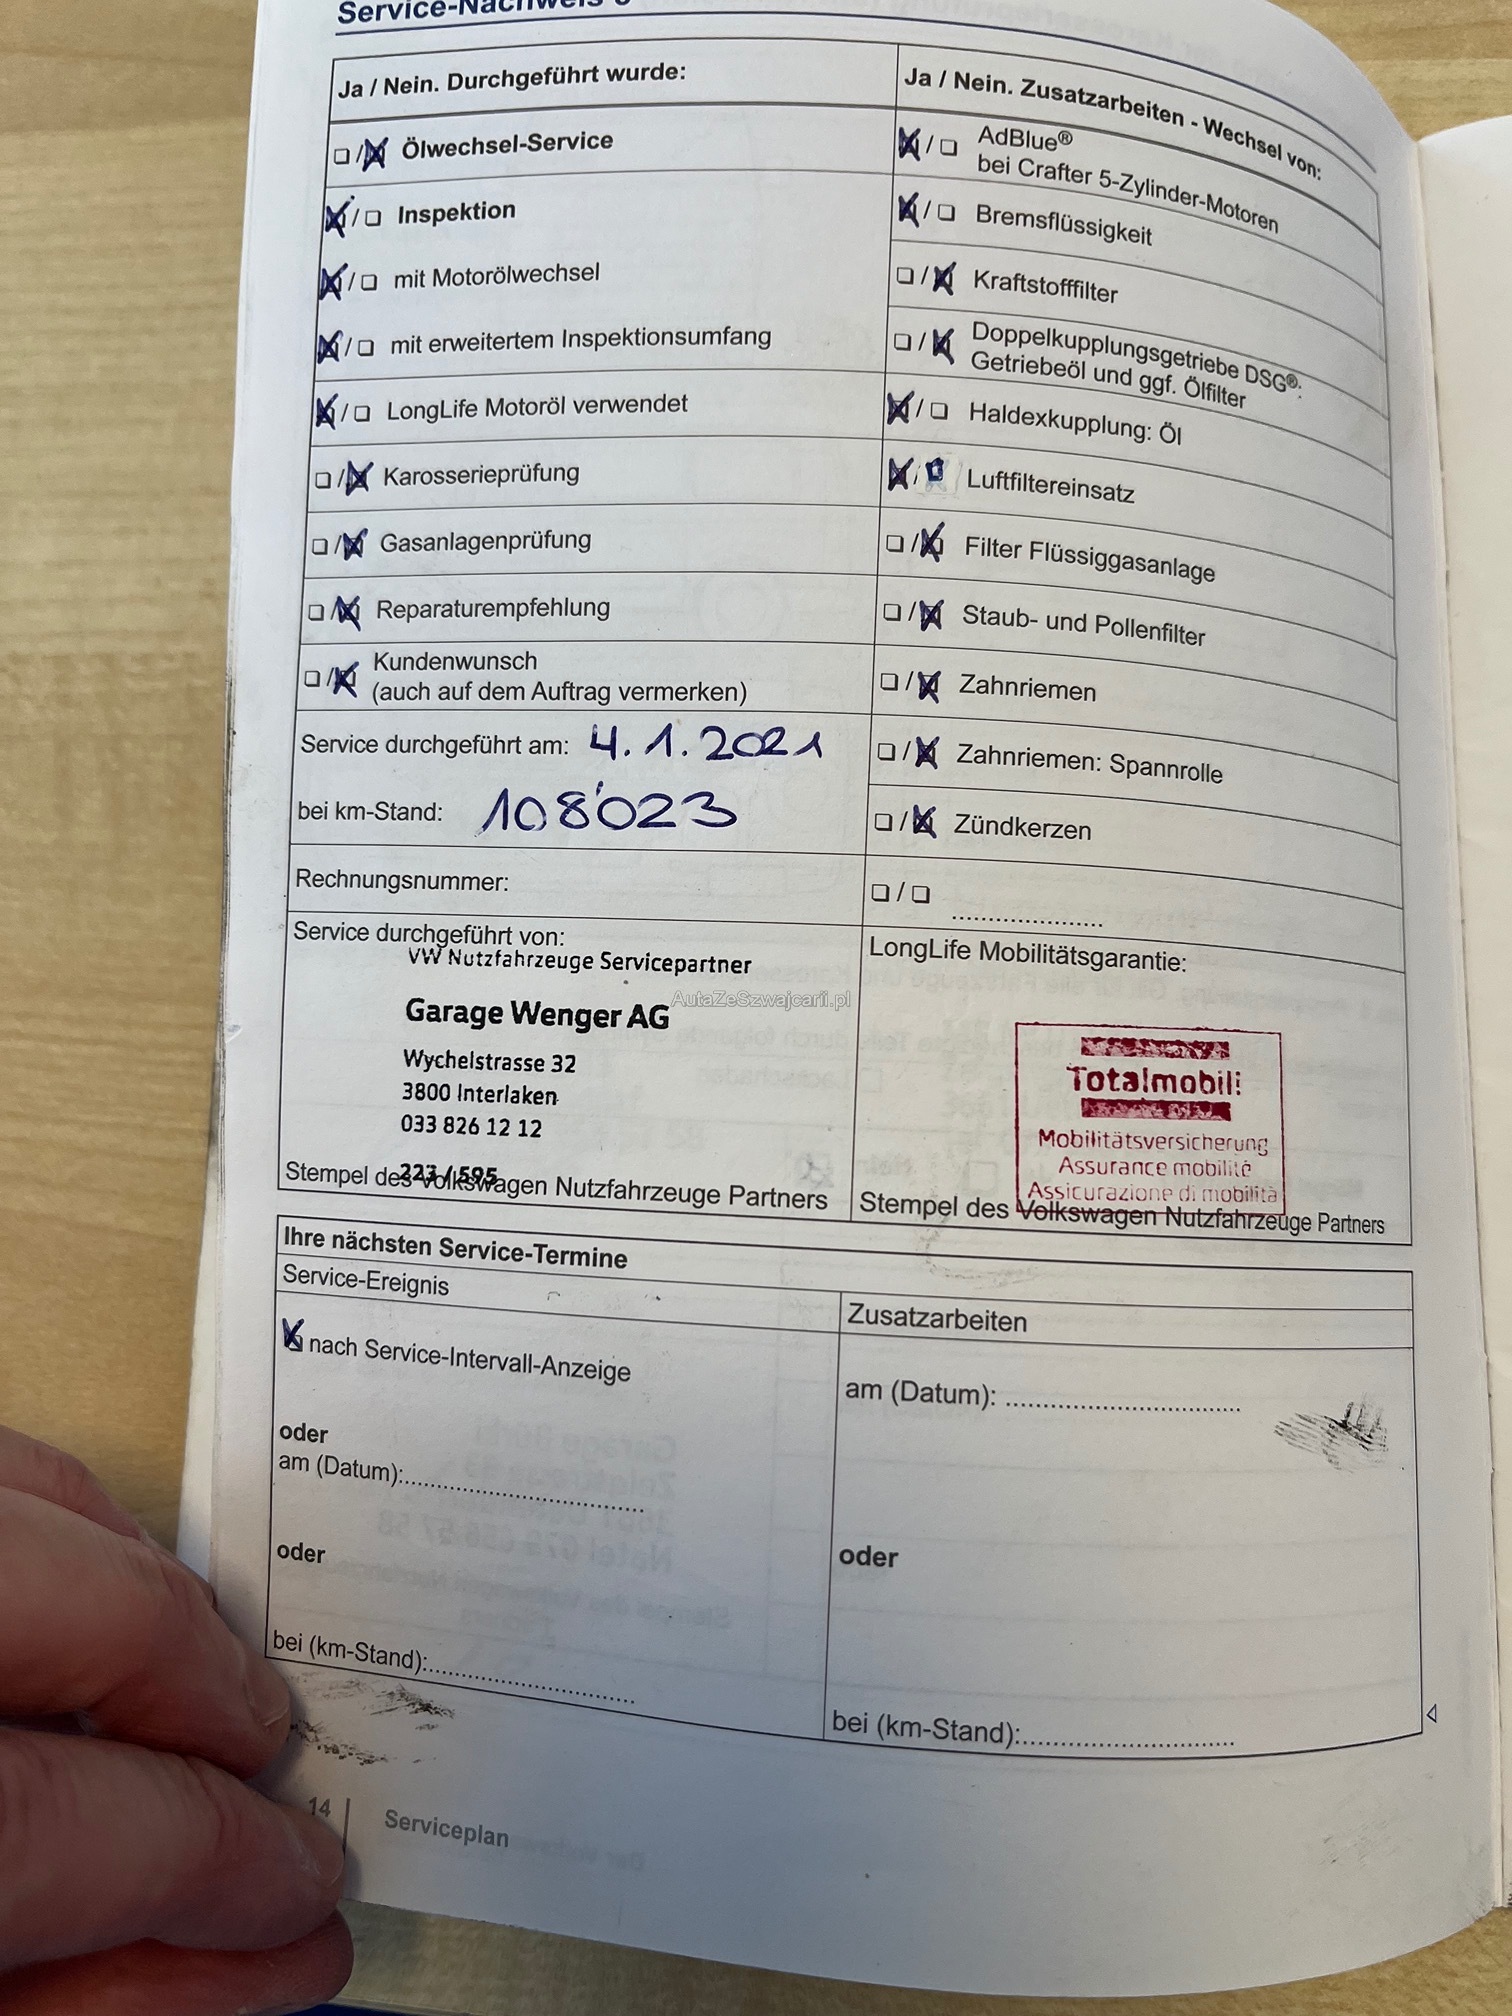 Service-Nachweis
Ja / Nein. Durchgeführt wurde:
Ölwechsel-Service
Inspektion
mit Motorölwechsel
mit erweitertem Inspektionsumfang
LongLife Motoröl verwendet
Karosserieprüfung
Gasanlagenprüfung
Reparaturempfehlung
Kundenwunsch
(auch auf dem Auftrag vermerken)
Service durchgeführt am: 4.1.2021
bei km-Stand: 108'023
Rechnungsnummer:
Service durchgeführt von:
VW Nutzfahrzeuge Servicepartner
Garage Wenger AG
Wychelstrasse 32
3800 Interlaken
033 826 12 12
223 / 595
Stempel des Volkswagen Nutzfahrzeuge Partners
Ja / Nein. Zusatzarbeiten - Wechsel von:
AdBlue®
bei Crafter 5-Zylinder-Motoren
Bremsflüssigkeit
Kraftstofffilter
Doppelkupplungsgetriebe DSG®:
Getriebeöl und ggf. Ölfilter
Haldexkupplung: Öl
Luftfiltereinsatz
Filter Flüssiggasanlage
Staub- und Pollenfilter
Zahnriemen
Zahnriemen: Spannrolle
Zündkerzen
LongLife Mobilitätsgarantie:
Totalmobil!
Mobilitätsversicherung
Assurance mobilité
Assicurazione di mobilità
Stempel des Volkswagen Nutzfahrzeuge Partners
AutaZeSzwajcarii.pl
Ihre nächsten Service-Termine
Service-Ereignis
nach Service-Intervall-Anzeige
oder
am (Datum):
oder
bei (km-Stand):
Zusatzarbeiten
am (Datum):
oder
bei (km-Stand):
14
Serviceplan